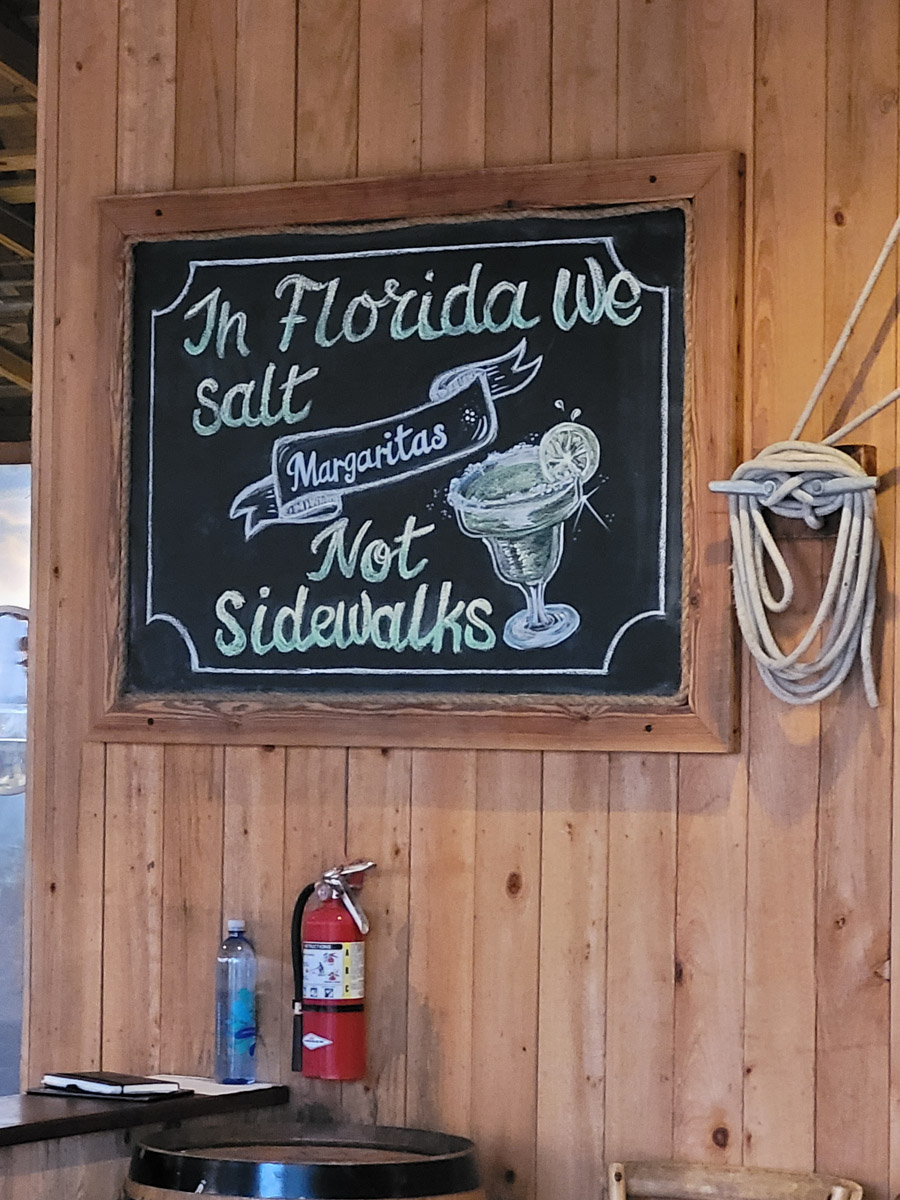 In Florida We
Salt
Margaritas
Not
Sidewalks
INSTRUCTIONS
A
B
C